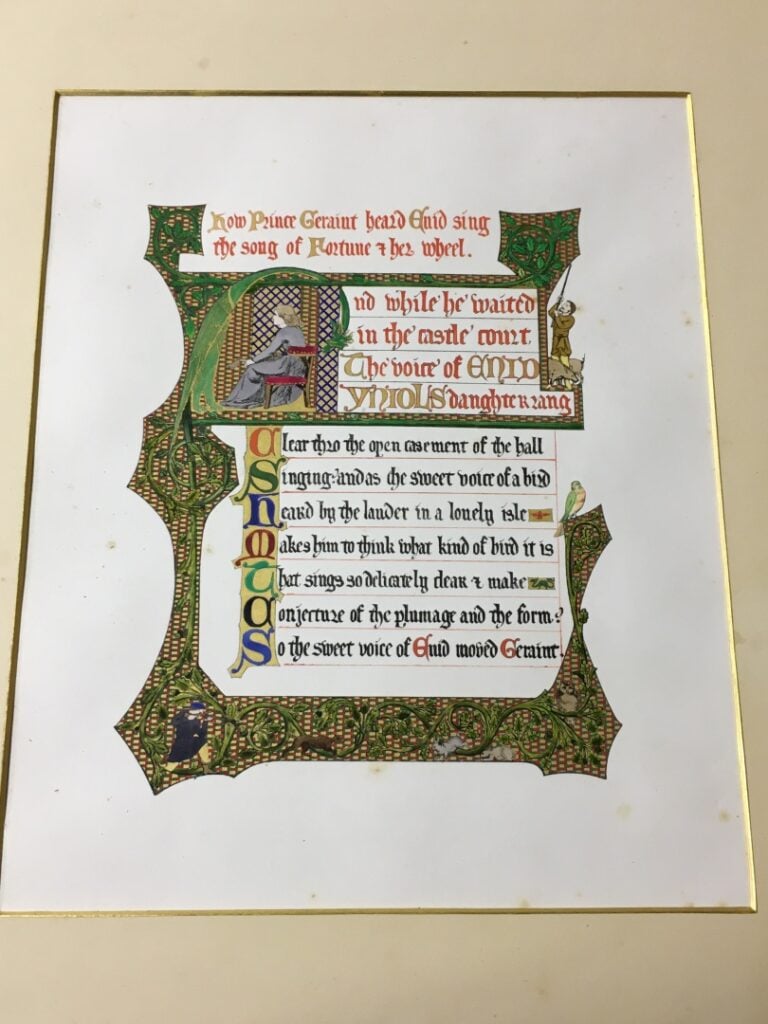 How Prince Geraint heard Enid sing
the song of Fortune & her wheel.
And while he waited
in the castle court
The voice of ENID
YNIOLS daughter rang
Clear thro the open casement of the hall
Singing: and as the sweet voice of a bird
Heard by the lander in a lonely isle
Makes him to think what kind of bird it is
That sings so delicately clear & make
Conjecture of the plumage and the form:
So the sweet voice of Enid moved Geraint.